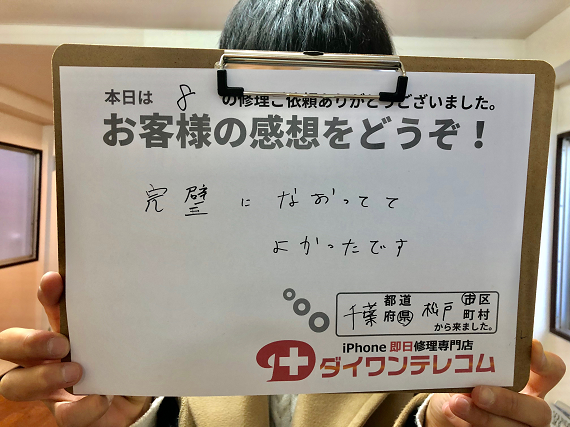 本日は 8 の修理ご依頼ありがとうございました。
お客様の感想をどうぞ！
完璧になおってて
よかったです
千葉 都道府県 松戸 市区町村
から来ました。
iPhone 即日修理専門店
ダイワンテレコム